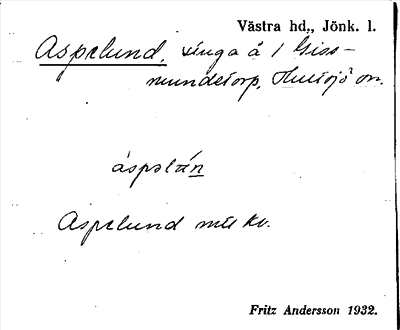 Västra hd., Jönk. l.
Aspelund, stuga å 1 Giss-
mundetorp, Hultsjö sn.
áspəlán
Aspelund mst kv.
Fritz Andersson 1932.